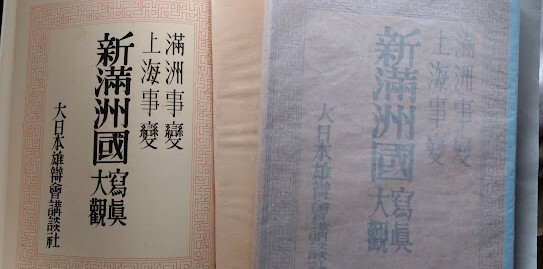 滿洲事變
上海事變
新滿洲國
寫眞大觀
大日本雄辯會講談社
滿洲事變
上海事變
新滿洲國
寫眞大觀
大日本雄辯會講談社